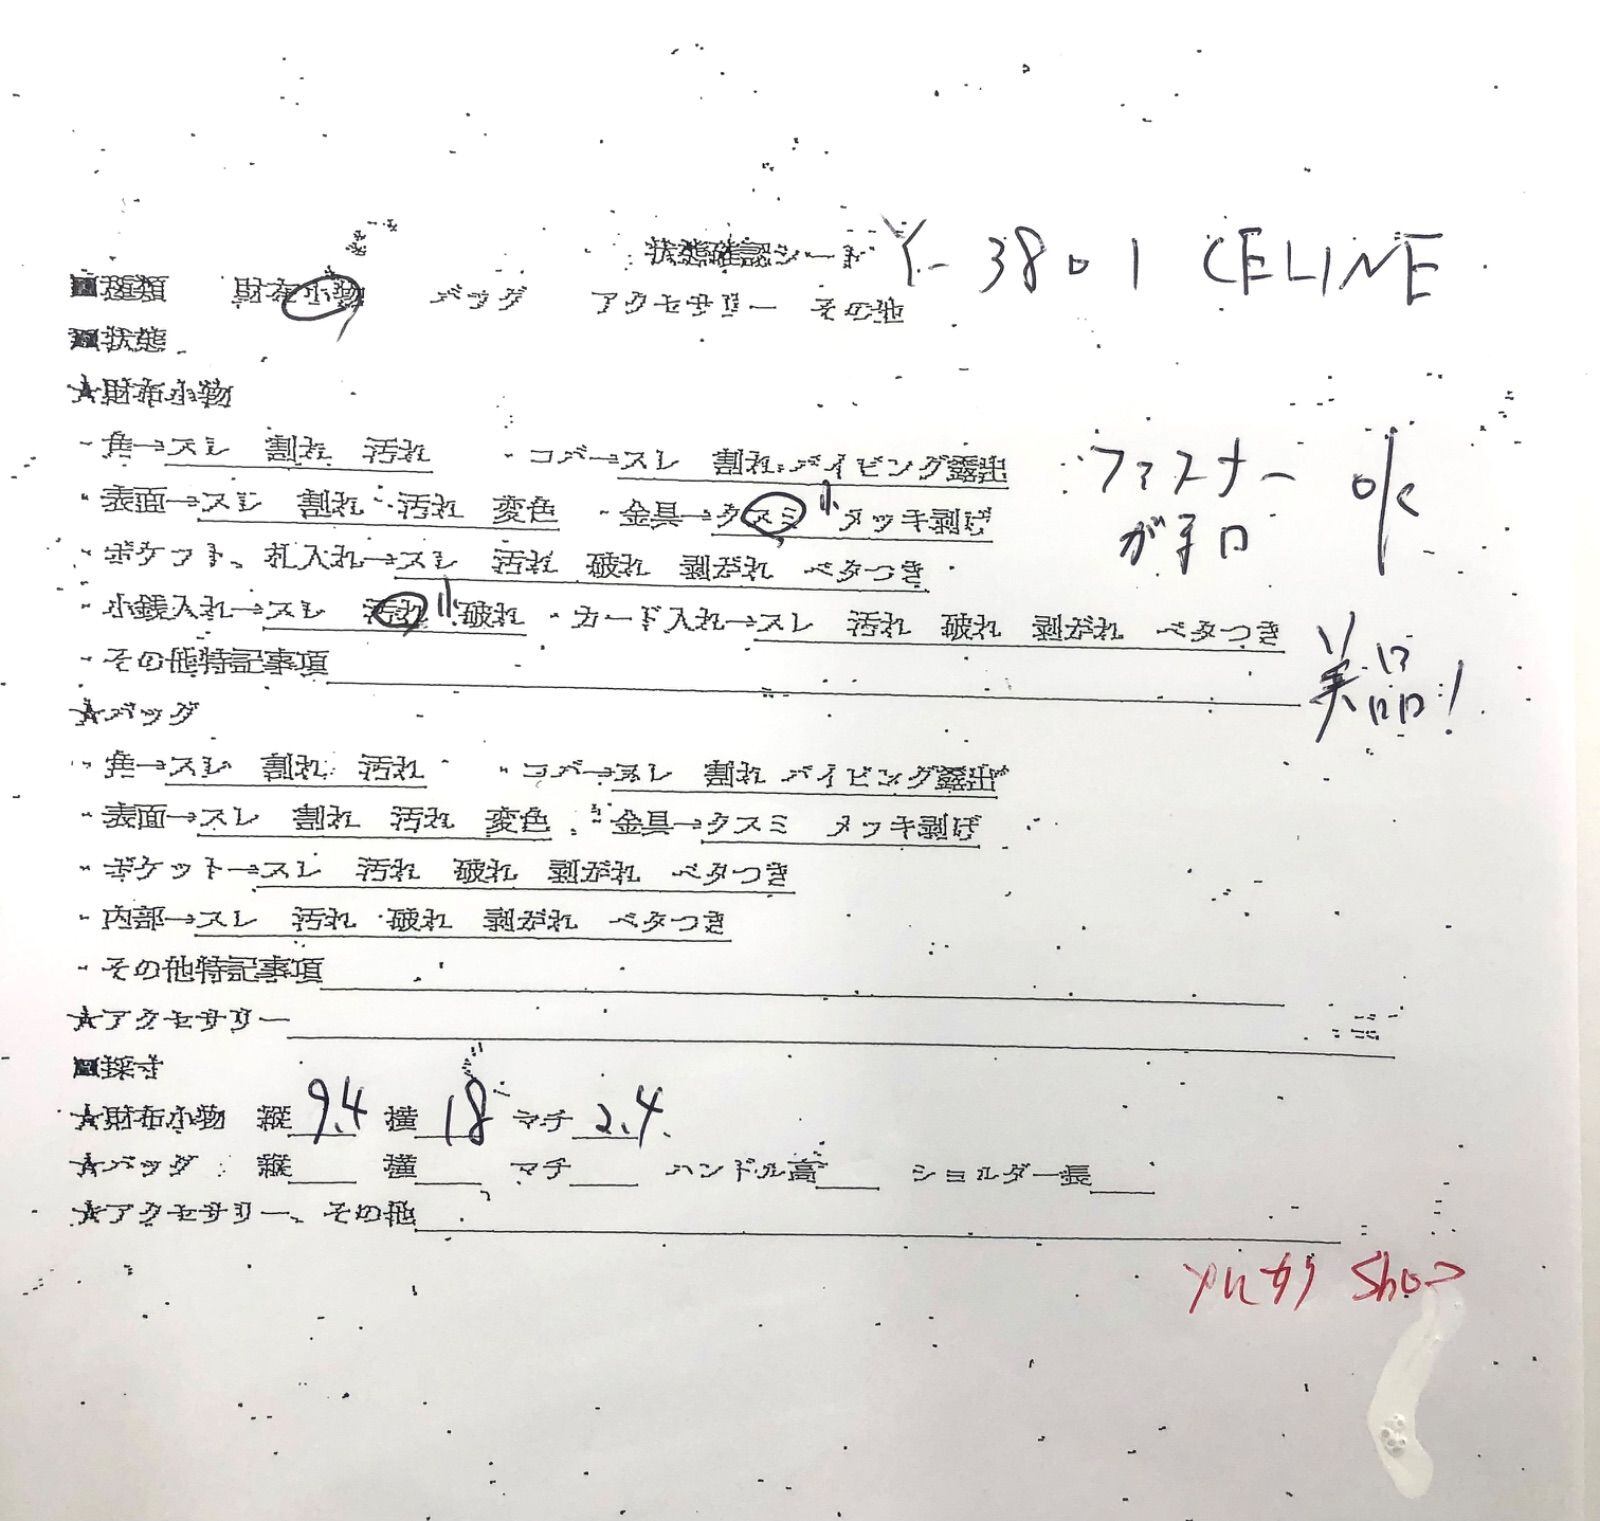 状態確認シート Y-3801 CELINE
■種類 財布小物 バッグ アクセサリー その他
■状態
★財布小物
・角→スレ 割れ 汚れ ・コバ→スレ 割れ パイピング露出
ファスナー OK
・表面→スレ 割れ 汚れ 変色 ・金具→クスミ 小 メッキ剥げ
がま口
・ポケット、札入れ→スレ 汚れ 破れ 剥がれ ベタつき
・小銭入れ→スレ 汚れ 小 破れ ・カード入れ→スレ 汚れ 破れ 剥がれ ベタつき
・その他特記事項
美品!
★バッグ
・角→スレ 割れ 汚れ ・コバ→スレ 割れ パイピング露出
・表面→スレ 割れ 汚れ 変色 ・金具→クスミ メッキ剥げ
・ポケット→スレ 汚れ 破れ 剥がれ ベタつき
・内部→スレ 汚れ 破れ 剥がれ ベタつき
・その他特記事項
★アクセサリー
■採寸
★財布小物 縦 9.4 横 18 マチ 2.4
★バッグ 縦 横 マチ ハンドル高 ショルダー長
★アクセサリー、その他